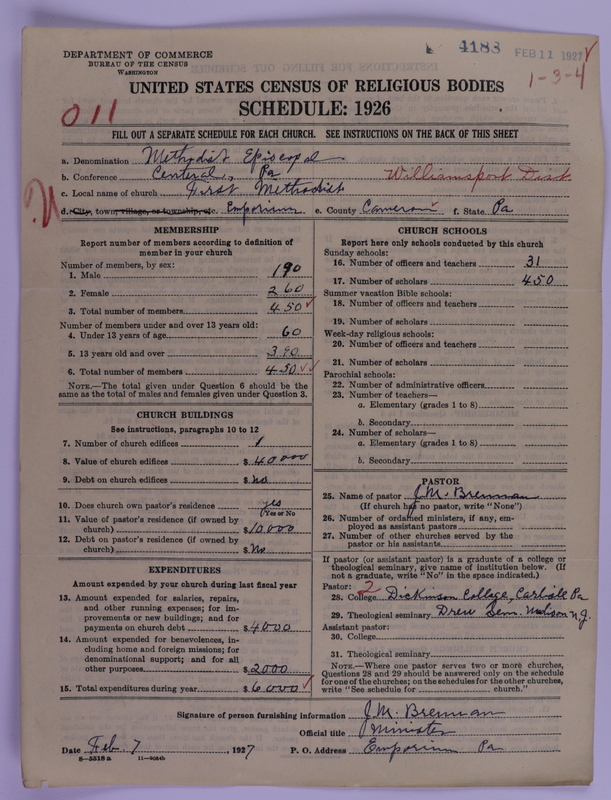 4183 FEB 11 1927
1-3-4
DEPARTMENT OF COMMERCE
BUREAU OF THE CENSUS
WASHINGTON
UNITED STATES CENSUS OF RELIGIOUS BODIES
SCHEDULE: 1926
011
FILL OUT A SEPARATE SCHEDULE FOR EACH CHURCH. SEE INSTRUCTIONS ON THE BACK OF THIS SHEET
a. Denomination Methodist Episcopal
b. Conference Central, Pa Williamsport Dist
c. Local name of church First Methodist
d. City, town, village, or township, etc. Emporium e. County Cameron f. State Pa
MEMBERSHIP
Report number of members according to definition of
member in your church
Number of members, by sex:
1. Male 190
2. Female 260
3. Total number of members 450
Number of members under and over 13 years old:
4. Under 13 years of age 60
5. 13 years old and over 390
6. Total number of members 450
NOTE.—The total given under Question 6 should be the
same as the total of males and females given under Question 3.
CHURCH BUILDINGS
See instructions, paragraphs 10 to 12
7. Number of church edifices 1
8. Value of church edifices $40000
9. Debt on church edifices $ No
10. Does church own pastor's residence yes
(Yes or No)
11. Value of pastor's residence (if owned by
church) $10000
12. Debt on pastor's residence (if owned by
church) $ No
EXPENDITURES
Amount expended by your church during last fiscal year
13. Amount expended for salaries, repairs,
and other running expenses; for im-
provements or new buildings; and for
payments on church debt $4000
14. Amount expended for benevolences, in-
cluding home and foreign missions; for
denominational support; and for all
other purposes $2000
15. Total expenditures during year $6000
CHURCH SCHOOLS
Report here only schools conducted by this church
Sunday schools:
16. Number of officers and teachers 31
17. Number of scholars 450
Summer vacation Bible schools:
18. Number of officers and teachers
19. Number of scholars
Week-day religious schools:
20. Number of officers and teachers
21. Number of scholars
Parochial schools:
22. Number of administrative officers
23. Number of teachers—
a. Elementary (grades 1 to 8)
b. Secondary
24. Number of scholars—
a. Elementary (grades 1 to 8)
b. Secondary
PASTOR
25. Name of pastor J.M. Brennan
(If church has no pastor, write "None")
26. Number of ordained ministers, if any, em-
ployed as assistant pastors
27. Number of other churches served by the
pastor or his assistants
If pastor (or assistant pastor) is a graduate of a college or
theological seminary, give name of institution below. (If
not a graduate, write "No" in the space indicated.)
Pastor: 2
28. College Dickinson College, Carlisle Pa
29. Theological seminary Drew Sem. Madison N.J.
Assistant pastor:
30. College
31. Theological seminary
NOTE.—Where one pastor serves two or more churches,
Questions 28 and 29 should be answered only on the schedule
for one of the churches; on the schedules for the other churches,
write "See schedule for church."
Signature of person furnishing information J.M. Brennan
Official title Minister
Date Feb 7, 1927 P. O. Address Emporium Pa
8—5518a 11—9084b